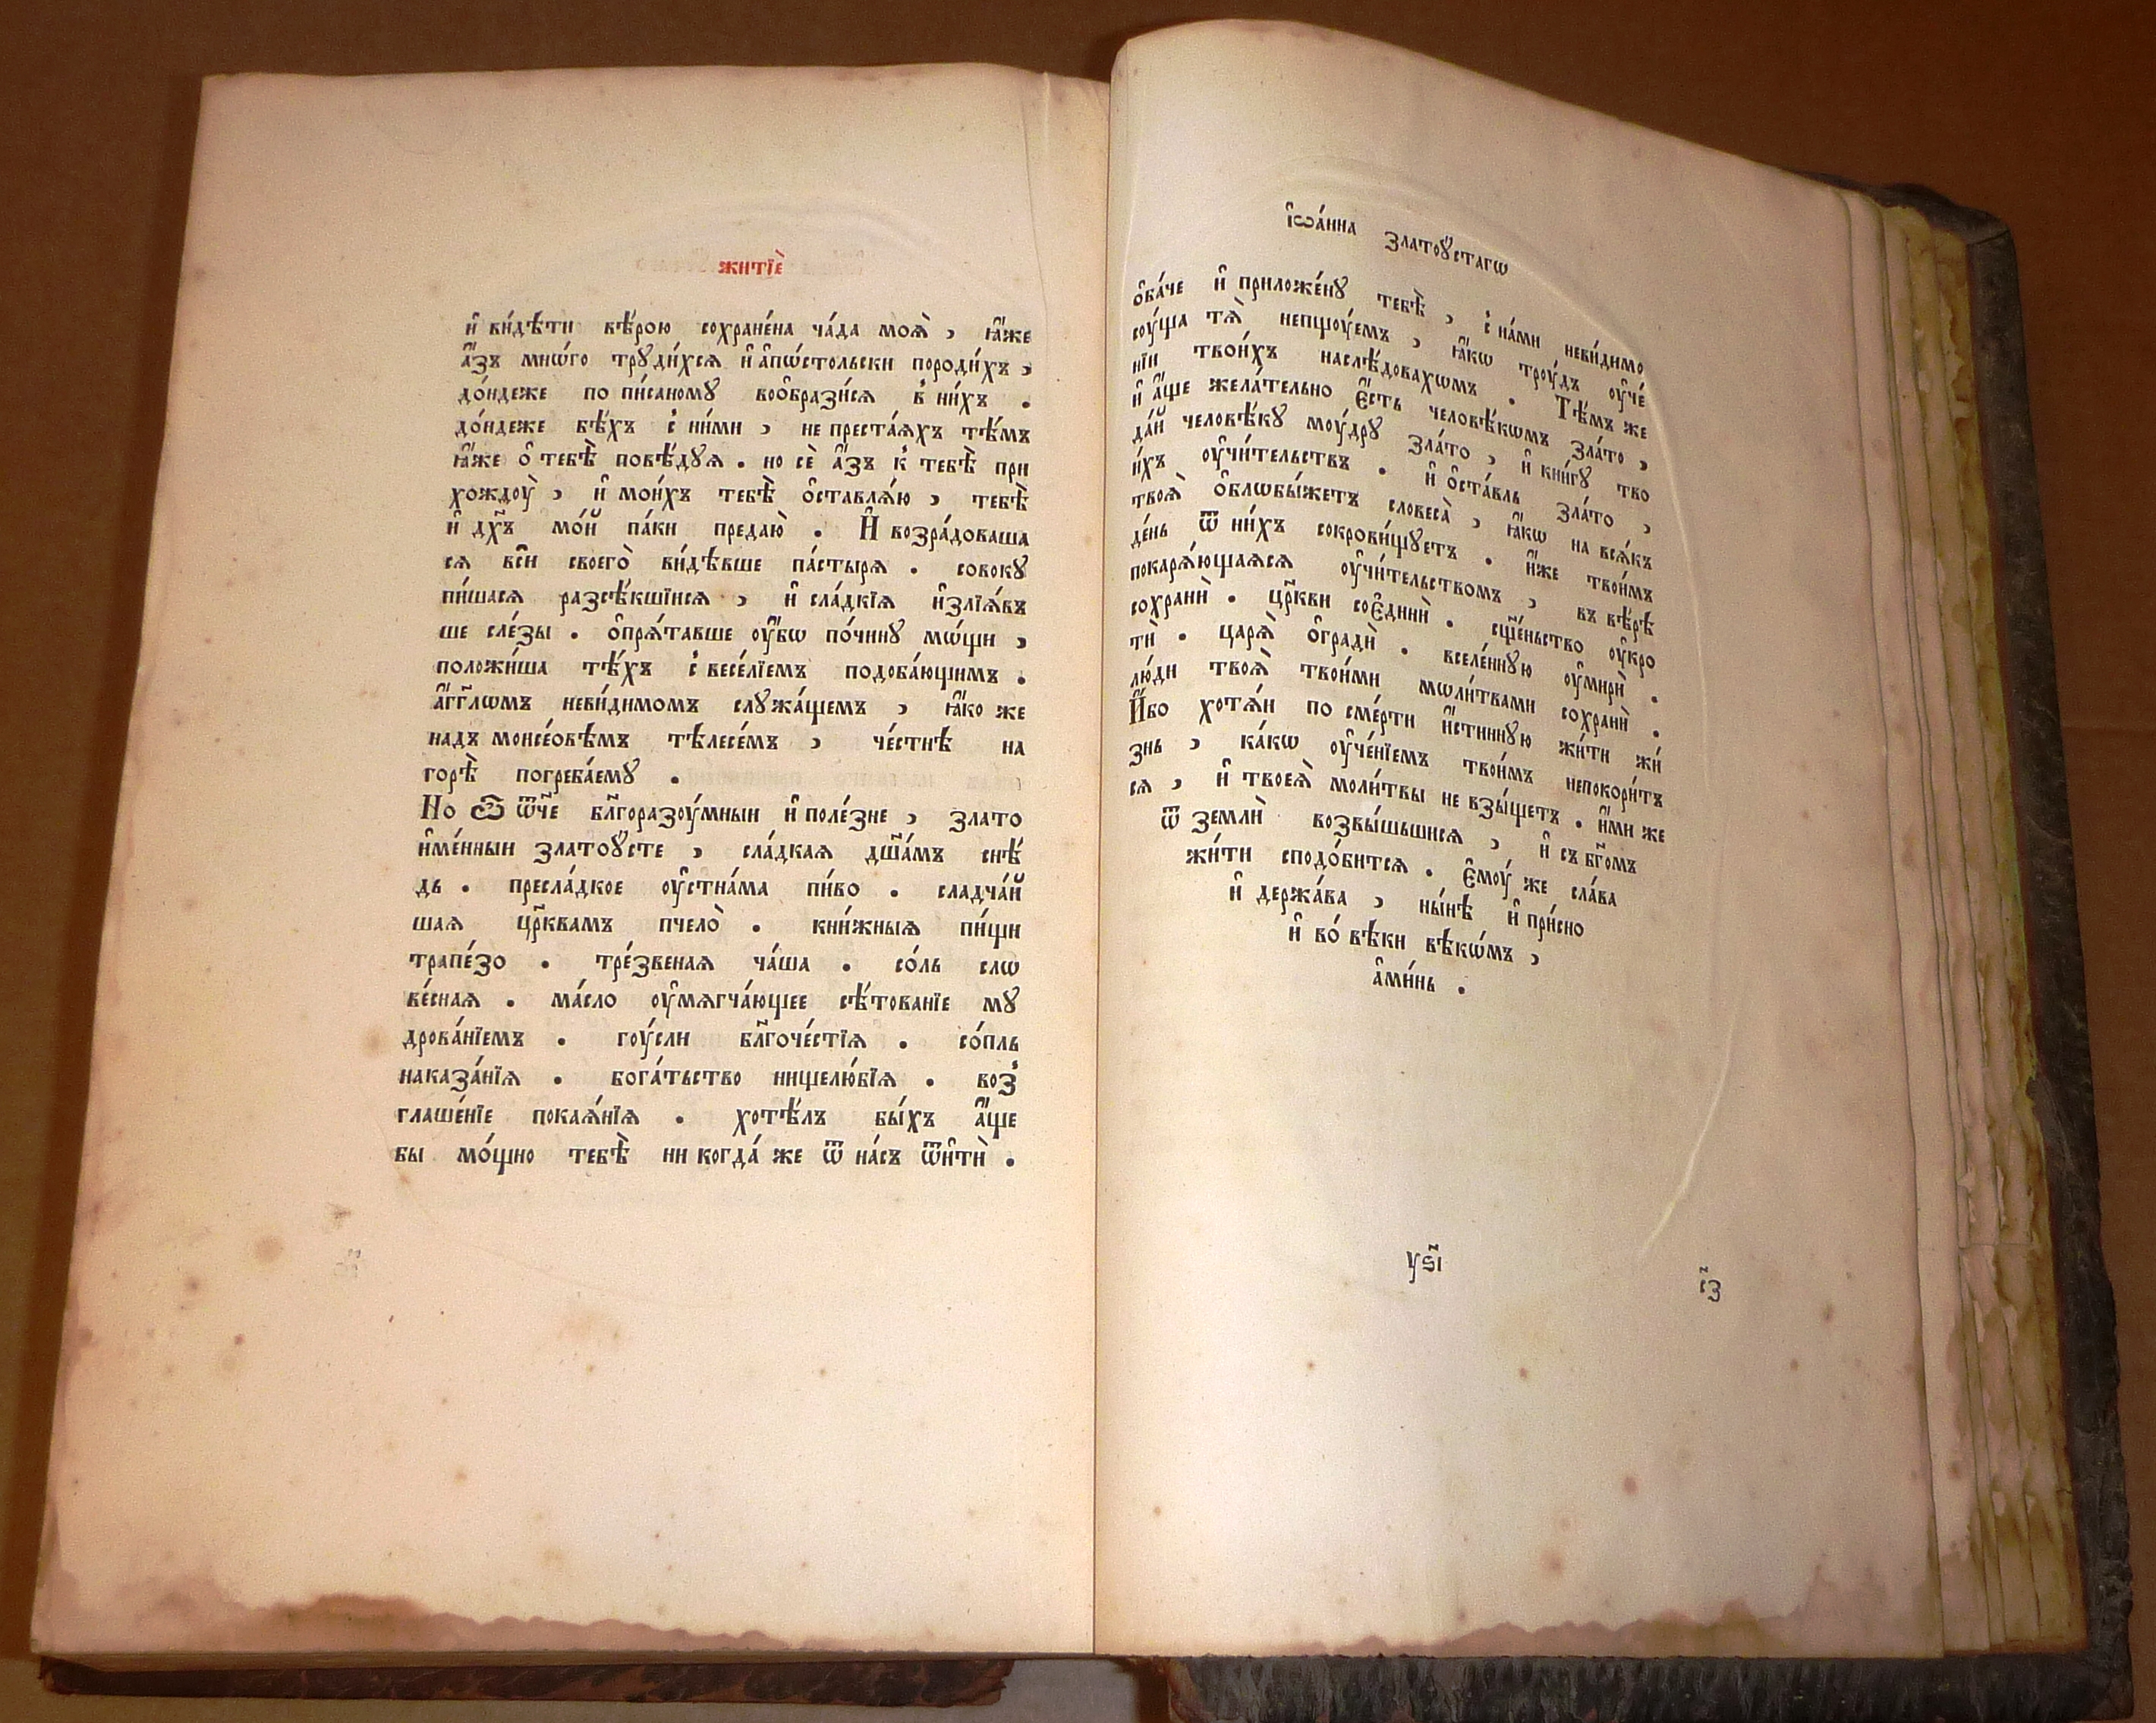 житїѐ
и҆ ви́дѣти вѣ́рою сохране́на ча́да моѧ̀ , ꙗ҆́же
а҆́зъ мно́гѡ трꙋди́хсѧ и҆ а҆пѡ́стольски породи́хъ ,
до́ндеже по пи́саномꙋ воѻбрази́сѧ в ни́хъ .
до́ндеже бѣ́хъ с ни́ми , не преста́ѧхъ тѣ́мъ
ꙗ҆́же ѻ҆ тебѣ̀ повѣ́дꙋѧ . но сѐ а҆́зъ к тебѣ̀ при
хождоу̀ , и҆ мои́хъ тебѣ̀ ѻ҆ставлѧ́ю , тебѣ̀
и҆ дх҃ъ мо́й па́ки предаю̀ . И҆ возра́доваша
сѧ всѝ своего̀ ви́дѣвше па́стырѧ . совокꙋ
пи́шасѧ разсѣ́кшїисѧ , и҆ сла́дкїѧ и҆злїѧ́въ
ше сле́зы . ѻ҆прѧ́тавше оу҆́бѡ по́чинꙋ мѡ́щи ,
положи́ша тѣ́хъ с весе́лїемъ подоба́ющимъ .
а҆́гг҃лѡмъ неви́димомъ слꙋжа́щемъ , ꙗ҆́ко же
надъ моисе́овѣмъ тѣлесе́мъ , че́стнѣ на
горѣ̀ погреба́емꙋ .
Но ѽ ѿч҃е бл҃горазоу́мныи и҆ поле́зне , злато
и҆ме́нныи златоꙋ́сте , сла́дкаѧ дш҃а́мъ снѣ́
дь . пресла́дкое оу҆стна́ма пи́во . сладча́й
шаѧ цр҃квамъ пчело̀ . кни́жныѧ пи́щи
трапе́зо . тре́звенаѧ ча́ша . со́ль слѡ
ве́снаѧ . ма́сло оу҆мѧгча́ющее сѣ́тованїе мꙋ
дрова́нїемъ . гоу́сли бл҃гоче́стїѧ . со́пль
наказа́нїѧ . бога́тьство нищелю́бїѧ . воз
глаше́нїе покаѧ́нїѧ . хотѣ́лъ бы́хъ а҆́ще
бы мо́щно тебѣ̀ ни когда́ же ѿ на́съ ѿитѝ .
і҆ѡа́нна златоꙋ́стагѡ
ѻ҆ба́че и҆ приложе́нꙋ тебѣ̀ , с на́ми неви́димо
соу́ща тѧ̀ непщоу́емъ , ꙗ҆́кѡ троу́дъ оу҆че́
нїи твои́хъ наслѣ́довахѡмъ . Тѣ́мъ же
и҆ а҆́ще жела́тельно є҆́сть человѣ́кѡмъ зла́то ,
да́й человѣ́кꙋ моу́дрꙋ зла́то , и҆ кни́гꙋ тво
и́хъ оу҆чи́тельствъ . и҆ ѻ҆ста́вль зла́то ,
твоѧ̀ ѻ҆блѡбы́жетъ словеса̀ , ꙗ҆́кѡ на всѧ́къ
де́нь ѿ ни́хъ сокрови́щꙋетъ . и҆́же твои́мъ
покарѧ́ющаѧсѧ оу҆чи́тельствомъ , въ вѣ́рѣ
сохранѝ . цр҃кви соє҆динѝ . сщ҃е́ньство оу҆кро
тѝ . царѧ̀ ѻ҆градѝ . вселе́ннꙋю оу҆мирѝ .
лю́ди твоѧ̀ твои́ми мѡли́твами сохранѝ .
И҆́бо хотѧ́и по сме́рти и҆́стиннꙋю жи́ти жи́
знь , ка́кѡ оу҆че́нїемъ твои́мъ непокори́тъ
сѧ , и҆ твоеѧ̀ моли́твы не взы́щетъ . и҆́ми же
ѿ землѝ возвы́шьшисѧ , и҆ съ бг҃омъ
жи́ти сподо́битсѧ . є҆моу́ же сла́ва
и҆ держа́ва , ны́нѣ и҆ при́сно
и҆ во́ вѣки вѣкѡ́мъ ,
а҆ми́нь .
уѕ҃і
с҃з